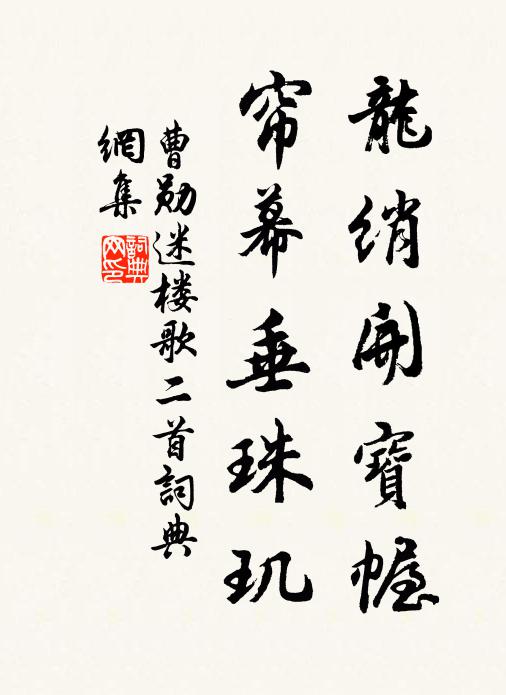 龍绡開寶幄
帘幕垂珠玑
曹勋迷楼歌二首詞典
網集
詞典网印